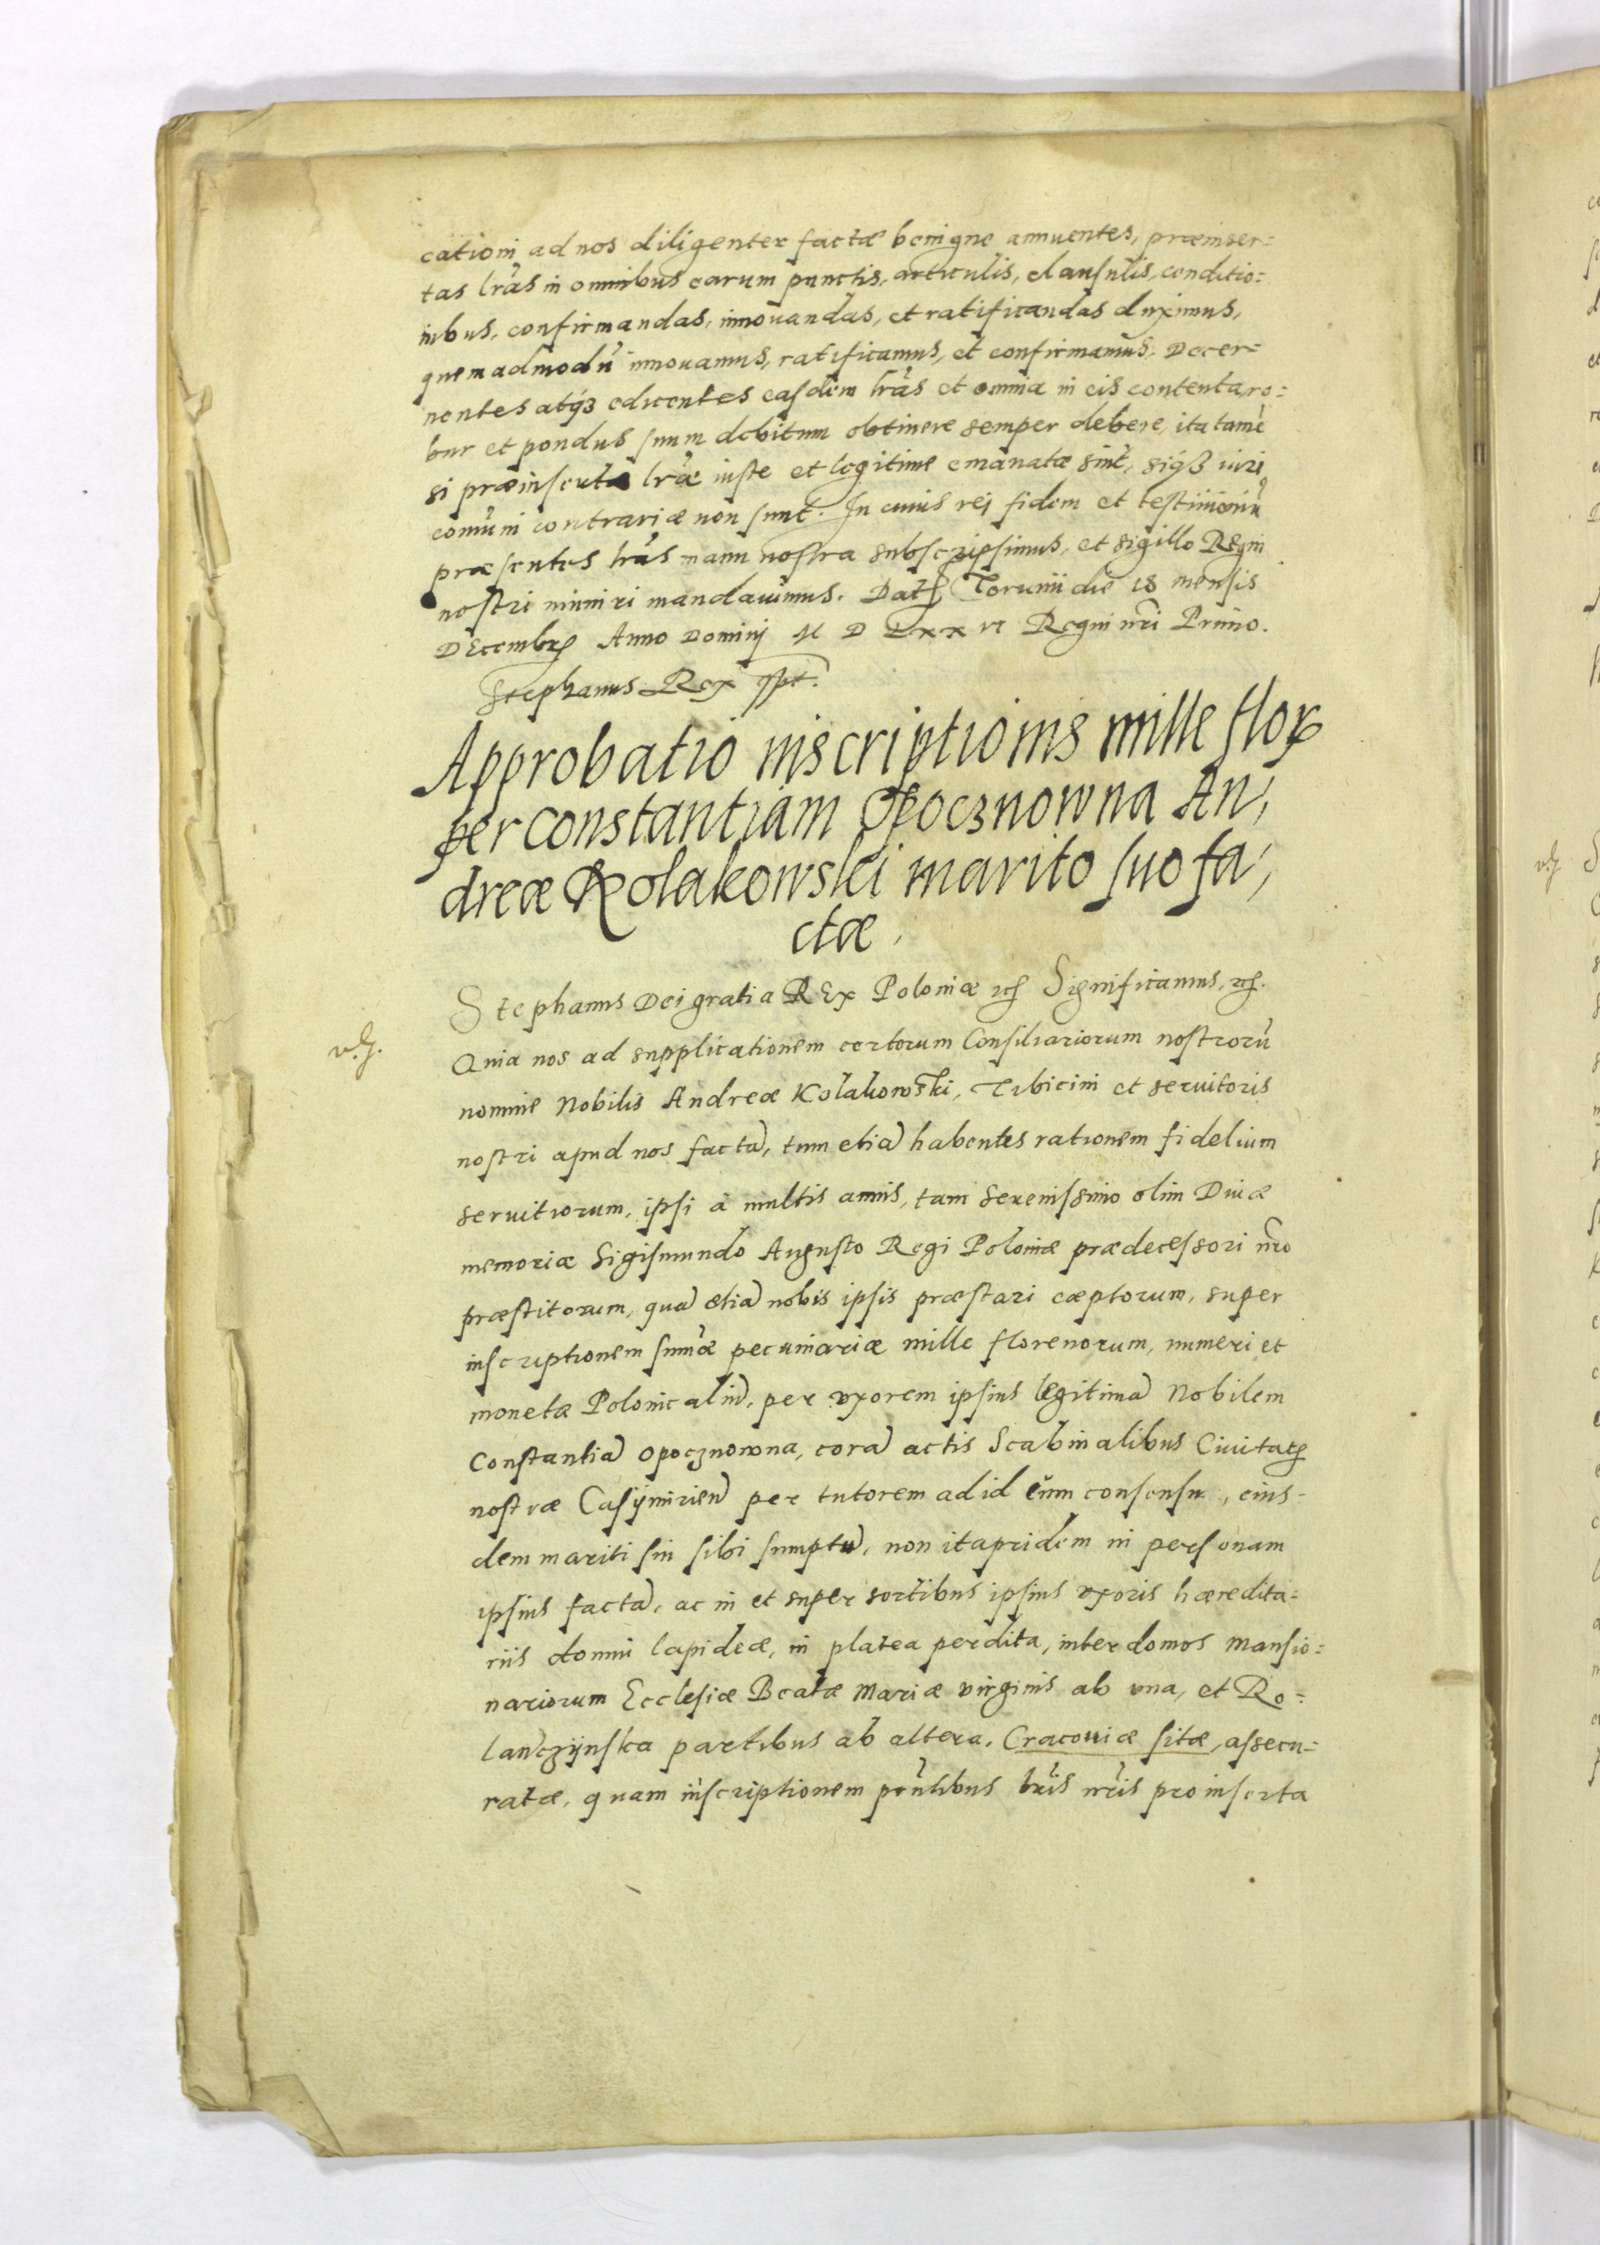 cationi ad nos diligenter factæ benigne annuentes, præinser=
tas lrãs in omnibus earum punctis, articulis, clausulis, conditio=
nibus, confirmandas, innouandas, et ratificandas duximus,
quemadmodũ innouamus, ratificamus, et confirmamus. Decer=
nentes atqꝫ edicentes easdem lrãs et omnia in eis contenta, ro=
bur et pondus suum debitum obtinere semper debere, ita tamẽ
si præinsertæ lræ iuste et legitime emanatæ sint, siqꝫ iuri
comũni contrariæ non sunt. In cuius rei fidem et testimoniũ
præsentes lrãs manu nostra subscripsimus, et sigillo Regni
nostri muniri mandauimus. Datꝭ Torunii die 18 mensis
Decembrꝭ Anno Dominj M D Lxx vi Regni nri Primo.
Stephanus Rex sspt.
Approbatio inscriptionis mille florꝝ
per Constantiam Opocznowna An,
dreæ Kolakowski marito suo fa,
ctæ,
Stephanus Dei gratia REx Poloniæ ꝛcꝭ Significamus, ꝛcꝭ.
Quia nos ad supplicationem certorum Consiliariorum nostrorũ
nomine Nobilis Andreæ Kolakowski, Tibicini et seruitoris
nostri apud nos factã, tum etiã habentes rationem fidelium
seruitiorum, ipsi à multis annis, tam Serenissimo olim Diuæ
memoriæ Sigismundo Augusto Regi Poloniæ prædecessori nro
præstitorum, quã etiã nobis ipsis præstari cæptorum, super
inscriptionem sum̃æ pecuniariæ mille florenorum, numeri et
monetæ Polonicaliũ, per vxorem ipsius legitimã Nobilem
Constantiã Opocznowna, corã actis Scabinalibus Ciuitatꝭ
nostræ Casijmirieñ per tutorem ad id cum consensu, eius-
dem mariti sui sibi sumptũ, non itapridem in personam
ipsius factã, ac in et super sortibus ipsius vxoris hæredita=
riis domui lapideæ, in platea perdita, inter domos Mansio=
nariorum Ecclesiæ Beatæ Mariæ virginis ab vna, et Ro=
lanczijnska partibus ab altera, Cracouiæ sitæ, assecu=
ratæ, quam inscriptionem pñtibus lris nris pro inserta